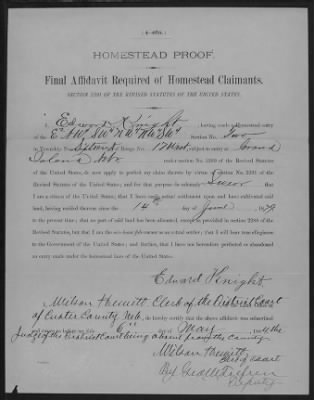 HOMESTEAD PROOF.
Final Affidavit Required of Homestead Claimants.
SECTION 2291 OF THE REVISED STATUTES OF THE UNITED STATES.
I, Edward Knight, having made a Homestead entry of the
Section No. Two
in Township No. Range No. subject to entry at Grand
Island Neb under section No. 2289 of the Revised Statutes
of the United States, do now apply to perfect my claim thereto by virtue of section No. 2291 of the
Revised Statutes of the United States; and for that purpose do solemnly Swear
that I am a citizen of the United States; that I have made actual settlement upon and have cultivated said
land, having resided thereon since the 14th day of June, 1879
to the present time; that no part of said land has been alienated, except as provided in section 2288 of the
Revised Statutes, but that I am the sole bona fide owner as an actual settler; that I will bear true allegiance
to the Government of the United States; and further, that I have not heretofore perfected or abandoned
an entry made under the homestead laws of the United States.
Edward Knight
I, Wilson Hewitt, Clerk of the District Court
of Custer County Neb, do hereby certify that the above affidavit was subscribed
and sworn to before me this 6th day of May, the
Judge of the District Court being absent from the County
Wilson Hewitt
Clerk of Court
By
Deputy